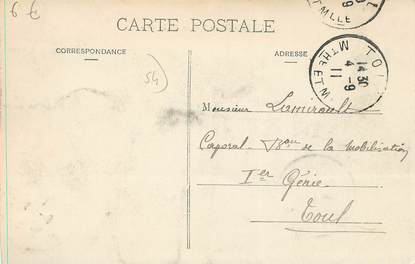 6 €
CARTE POSTALE
CORRESPONDANCE
ADRESSE
54
TOUL
14 30
4 - 9
11
Mthe ET M
Monsieur Lumirault
Caporal Bau de la mobilisation
1er Génie
Toul